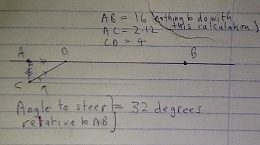 AB = 16 (nothing to do with
AC = 2.12 this calculation)
CD = 4
A D B
C
Angle to steer = 32 degrees
relative to AB